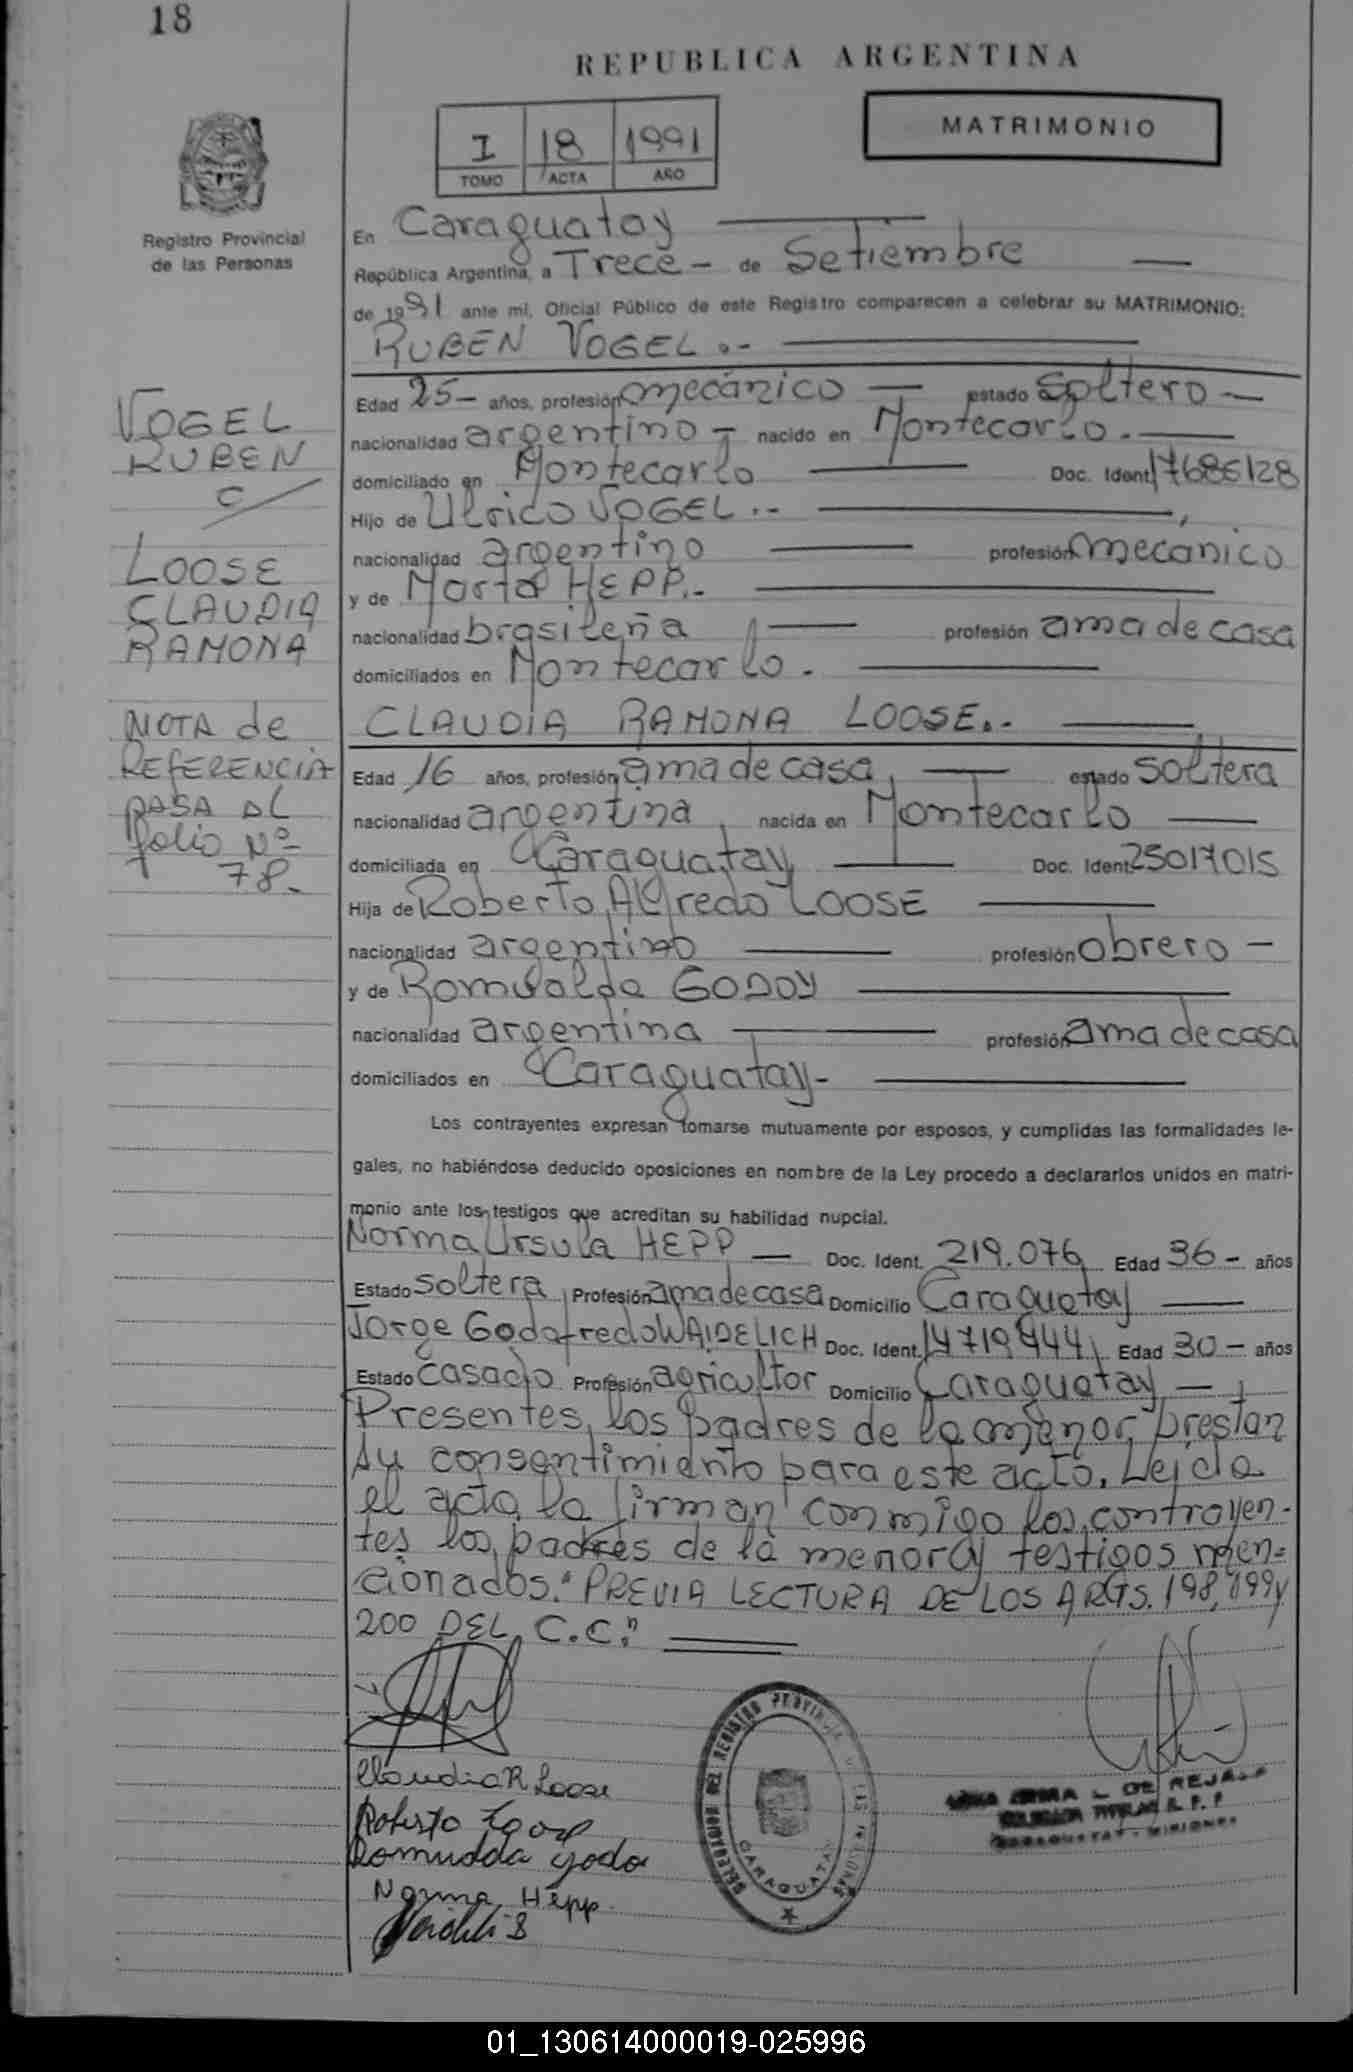 18
REPUBLICA ARGENTINA
I 18 1991
TOMO ACTA AÑO
MATRIMONIO
Registro Provincial
de las Personas
En Caraguatay
República Argentina, a Trece - de Setiembre
de 1991 ante mí, Oficial Público de este Registro comparecen a celebrar su MATRIMONIO:
RUBEN VOGEL.-
Edad 25- años, profesión mecánico estado soltero -
nacionalidad argentino - nacido en Montecarlo.
domiciliado en Montecarlo Doc. Ident. 17686128
Hijo de Ulrico VOGEL.-
nacionalidad argentino profesión mecanico
y de Marta HEPP.-
nacionalidad brasileña profesión ama de casa
domiciliados en Montecarlo.
CLAUDIA RAMONA LOOSE.-
Edad 16 años, profesión ama de casa, estado soltera
nacionalidad argentina, nacida en Montecarlo
domiciliada en Caraguatay, Doc. Ident. 25017015
Hija de Roberto Alfredo LOOSE
nacionalidad argentino profesión obrero -
y de Romualda GODOY
nacionalidad argentina profesión ama de casa
domiciliados en Caraguatay-
Los contrayentes expresan tomarse mutuamente por esposos, y cumplidas las formalidades le-
gales, no habiéndose deducido oposiciones en nombre de la Ley procedo a declararlos unidos en matri-
monio ante los testigos que acreditan su habilidad nupcial.
Norma Ursula HEPP - Doc. Ident. 219.076 Edad 36- años
Estado soltera, Profesión ama de casa Domicilio Caraguatay
Jorge Godofredo WAIDELICH Doc. Ident. 14719444 Edad 30- años
Estado casado Profesión agricultor Domicilio Caraguatay -,
Presentes, los padres de la menor, prestan
su consentimiento para este acto. Leida
el acta, la firman conmigo los contrayen-
tes los padres de la menor y testigos men=
cionados. "PREVIA LECTURA DE LOS ARTS. 198, 199 y
200 DEL C.C."
VOGEL
RUBEN
c/
LOOSE
CLAUDIA
RAMONA
NOTA de
REFERENCIA
PASA AL
folio Nº
78.-
Claudia R Loose
Roberto
Romualda godo
Norma Hepp.
DELEGACION DEL REGISTRO PROVINCIAL DE LAS PERSONAS
CARAGUATAY
L. DE REJALA
CARAGUATAY - MISIONES
01_130614000019-025996